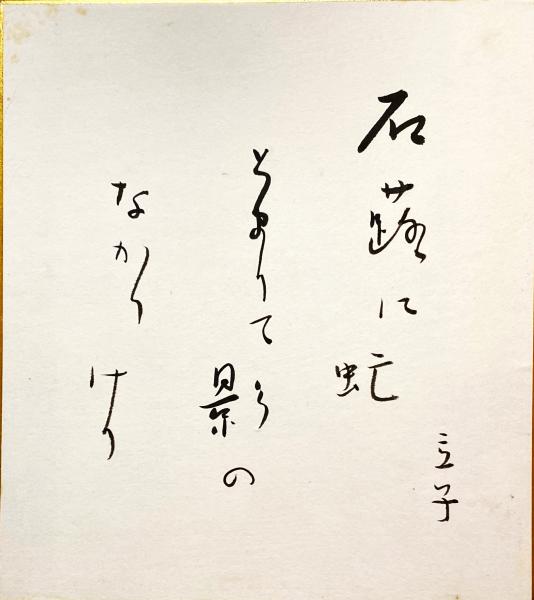 石蕗に虻
とまりて影の
なかりけり
立子